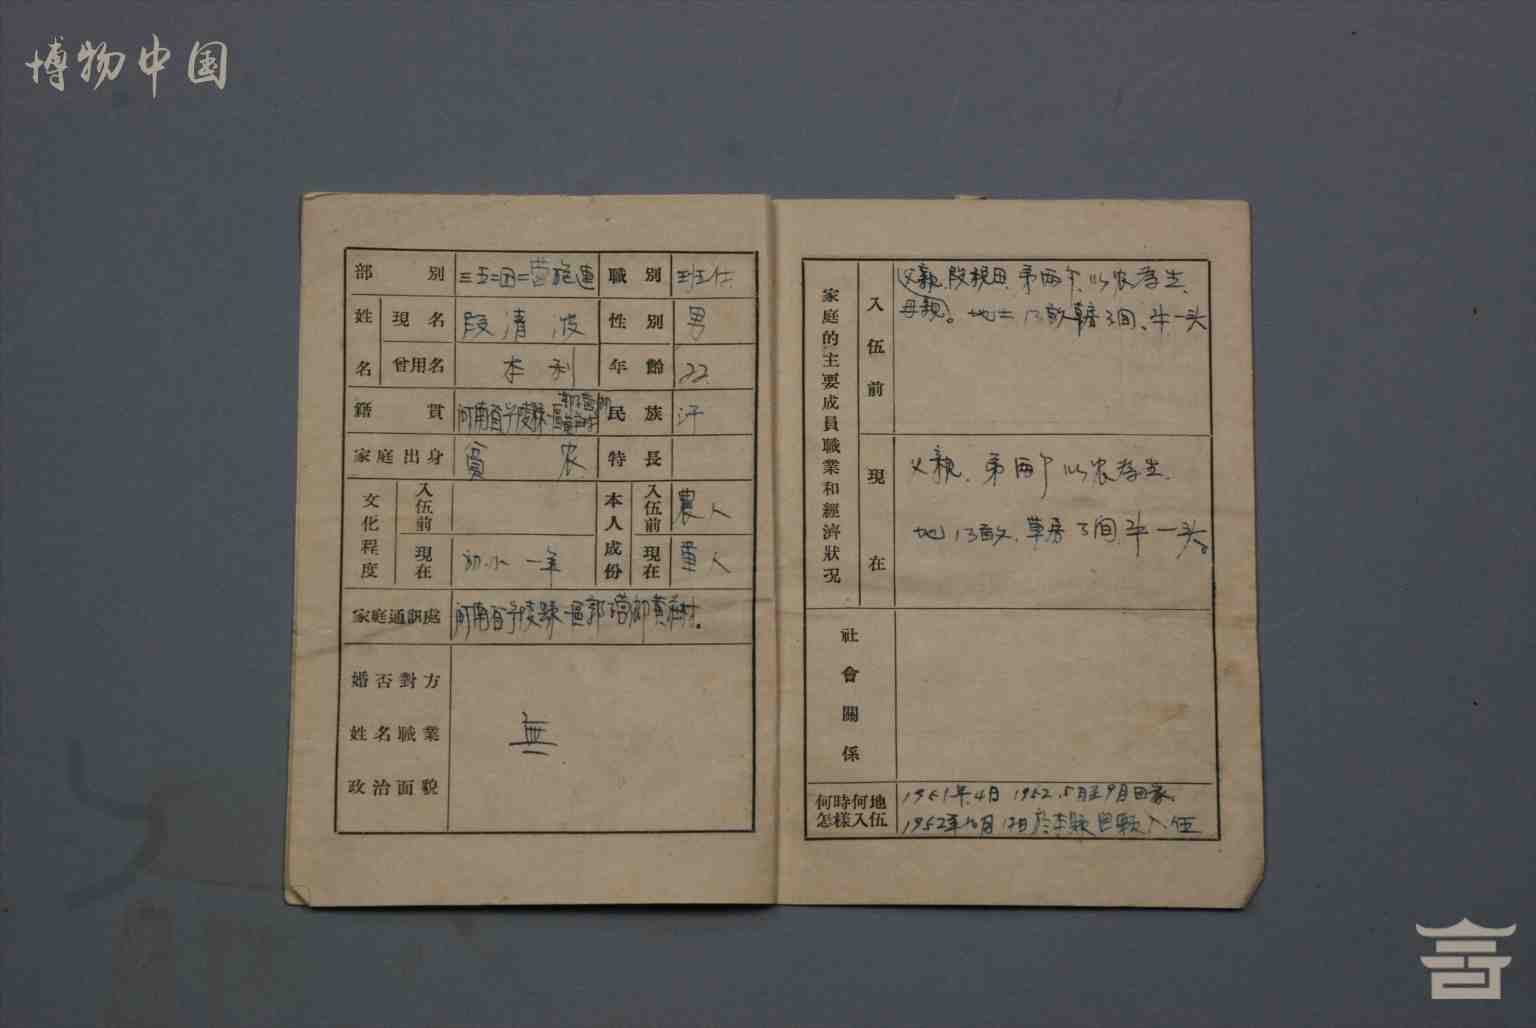 博物中国
部 別 三五二团二营炮連 職 別 班任
姓名 現 名 段清波 性 別 男
曾用名 本利 年 齡 22
籍 貫 河南省 陵縣一區 民 族 汗
家庭出身 貧农 特 長
文化程度 入伍前 本人成份 入伍前 農人
現在 初小一年 現在 軍人
家庭通訊處 河南省 陵縣一區郭 营 黄 村.
婚否對方
姓名職業 無
政治面貌
家庭的主要成員職業和經濟狀況
入伍前 父親 段根田, 弟两个, 以农存生.
母親。地土13畝草房3间、牛一头
現在 父親. 弟两个以农存生.
地13畝. 草房3间. 牛一头。
社會關係
何時何地怎樣入伍 1951年.4月 1952.5月至9月回家.
1952年10月12日於本縣自願入伍